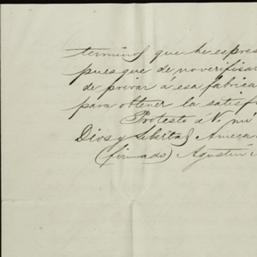 terminos que he espres
pues que de no verifisar
de privar á esa fabrica
para obtener la satisf
Protesto á V. mi
Dios y Libertad Ameca
(firmado) Agustin